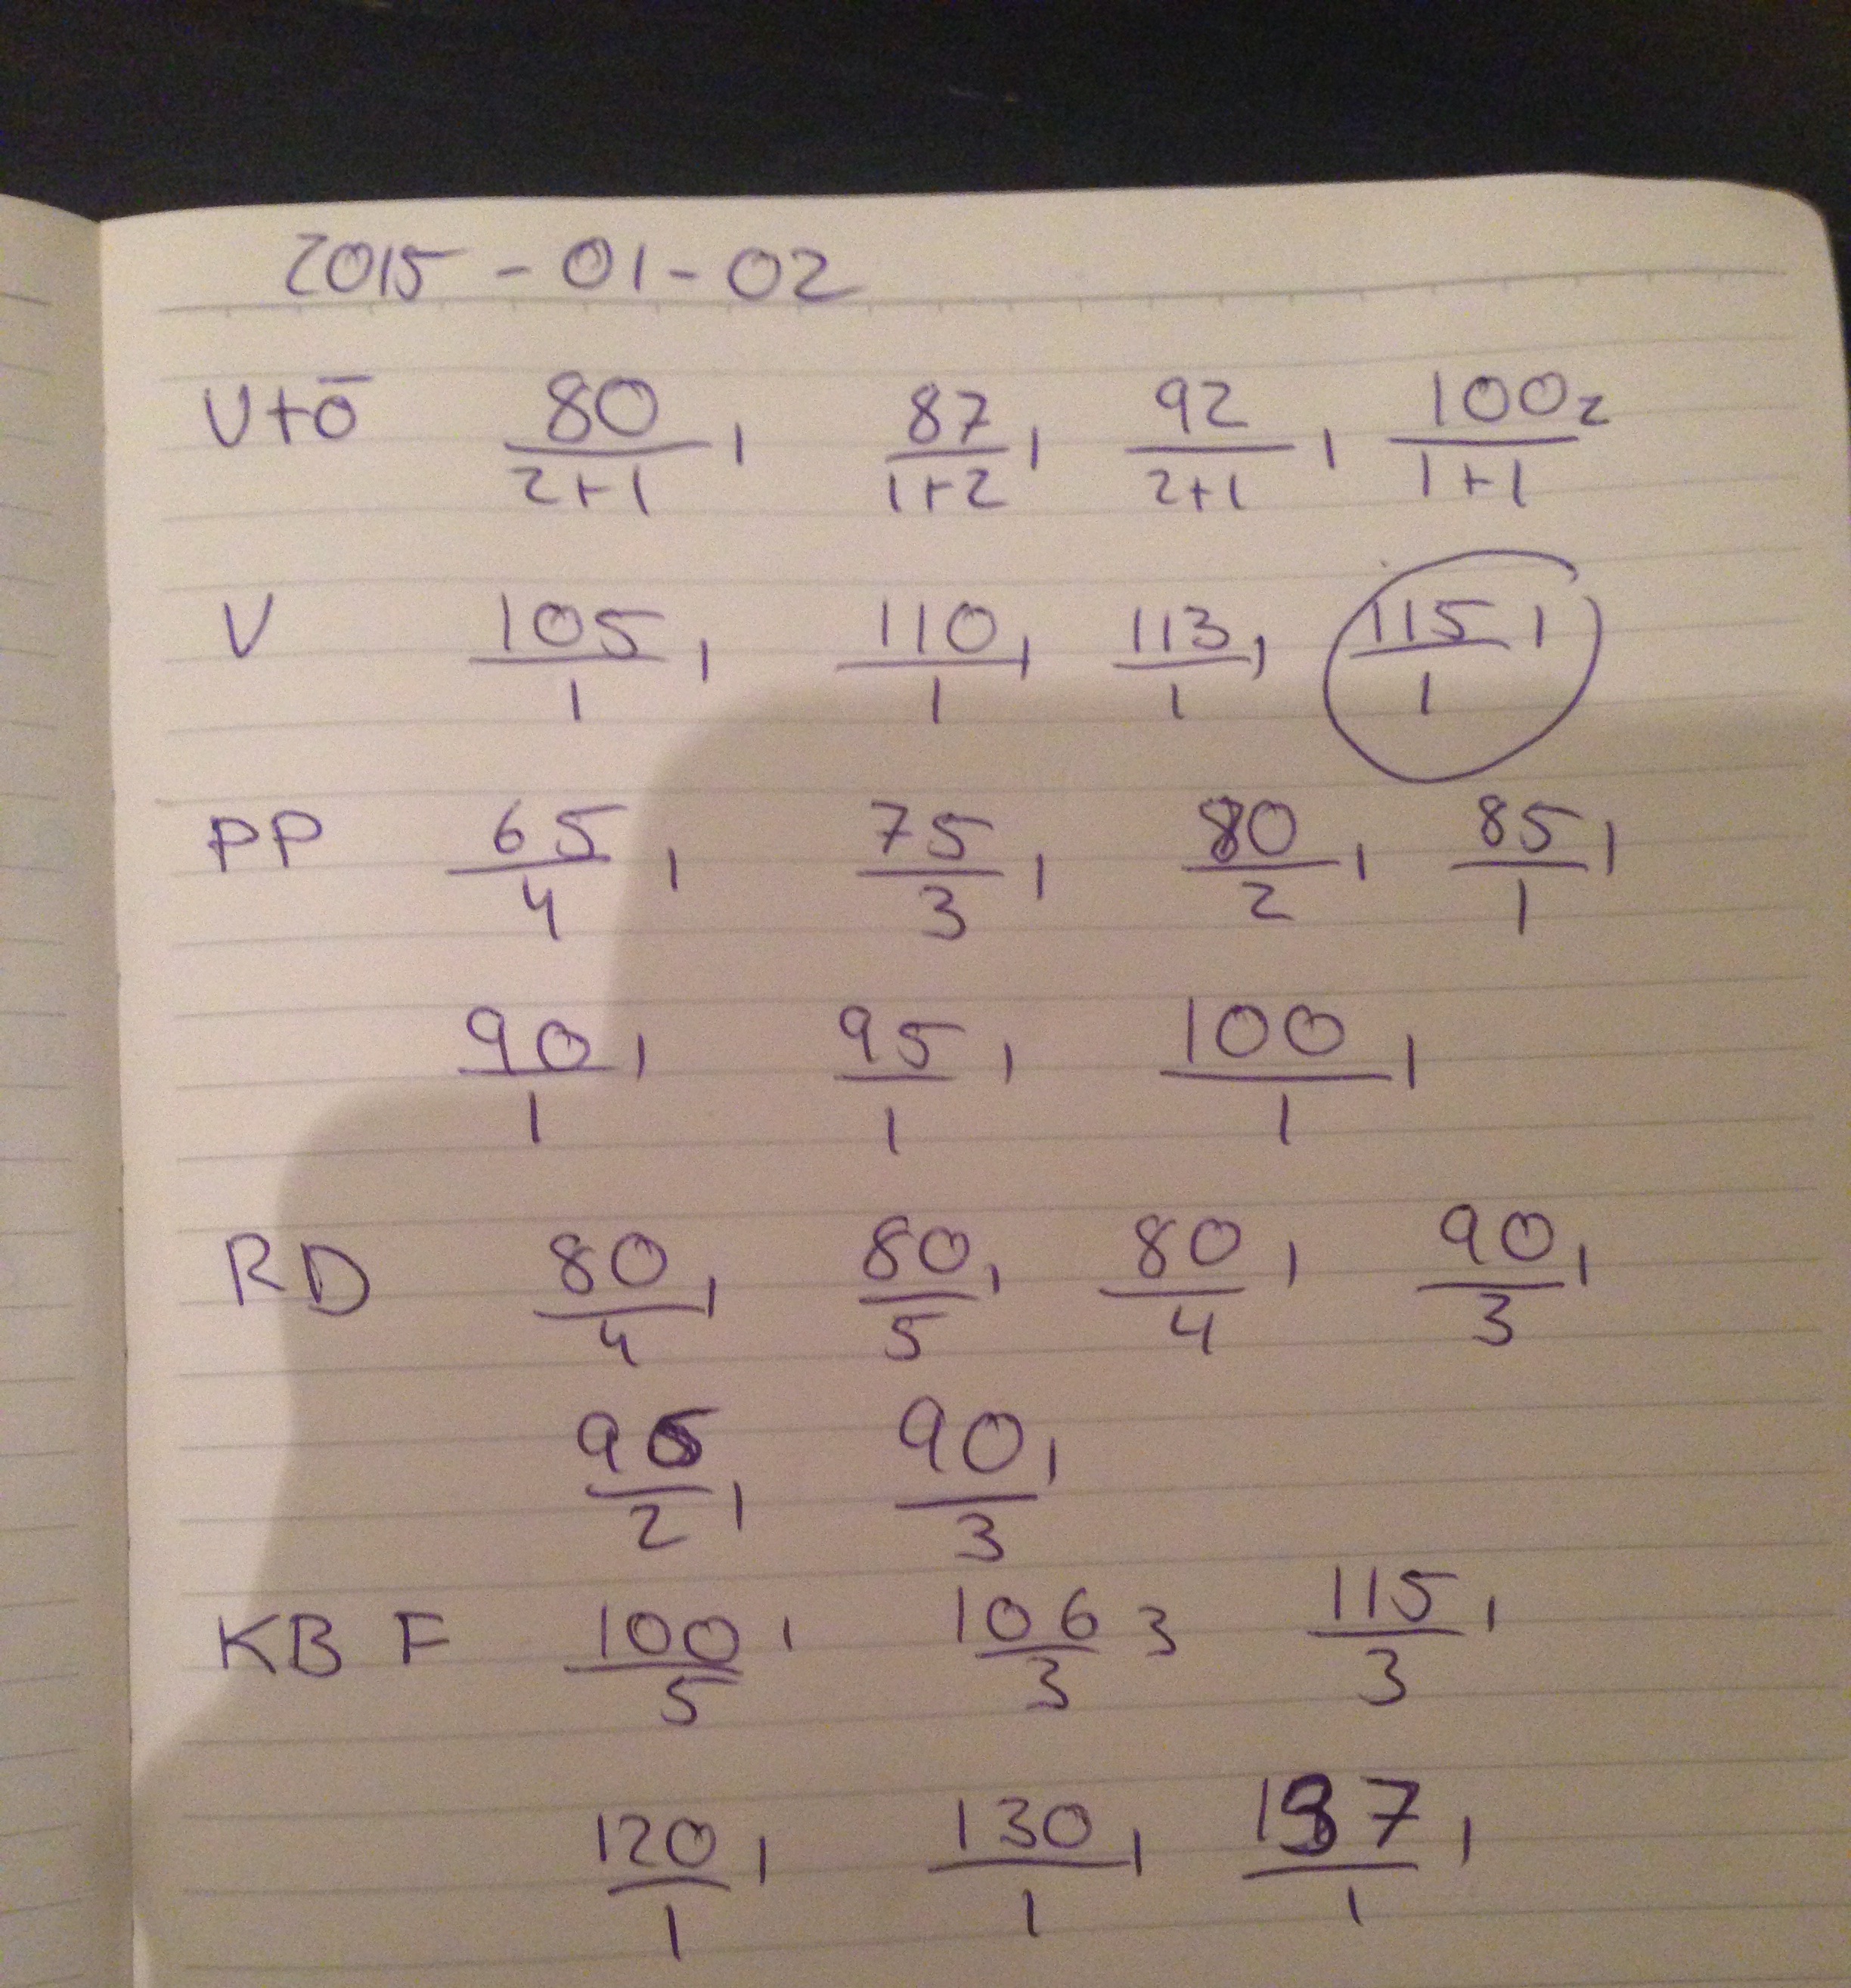 2015-01-02
V+ō 80/2+1 1 87/1+2 1 92/2+1 1 100/1+1 2
V 105/1 1 110/1 1 113/1 1 115/1 1
PP 65/4 1 75/3 1 80/2 1 85/1 1
90/1 1 95/1 1 100/1 1
RD 80/4 1 80/5 1 80/4 1 90/3 1
95/2 1 90/3 1
KB F 100/5 1 106/3 3 115/3 1
120/1 1 130/1 1 137/1 1